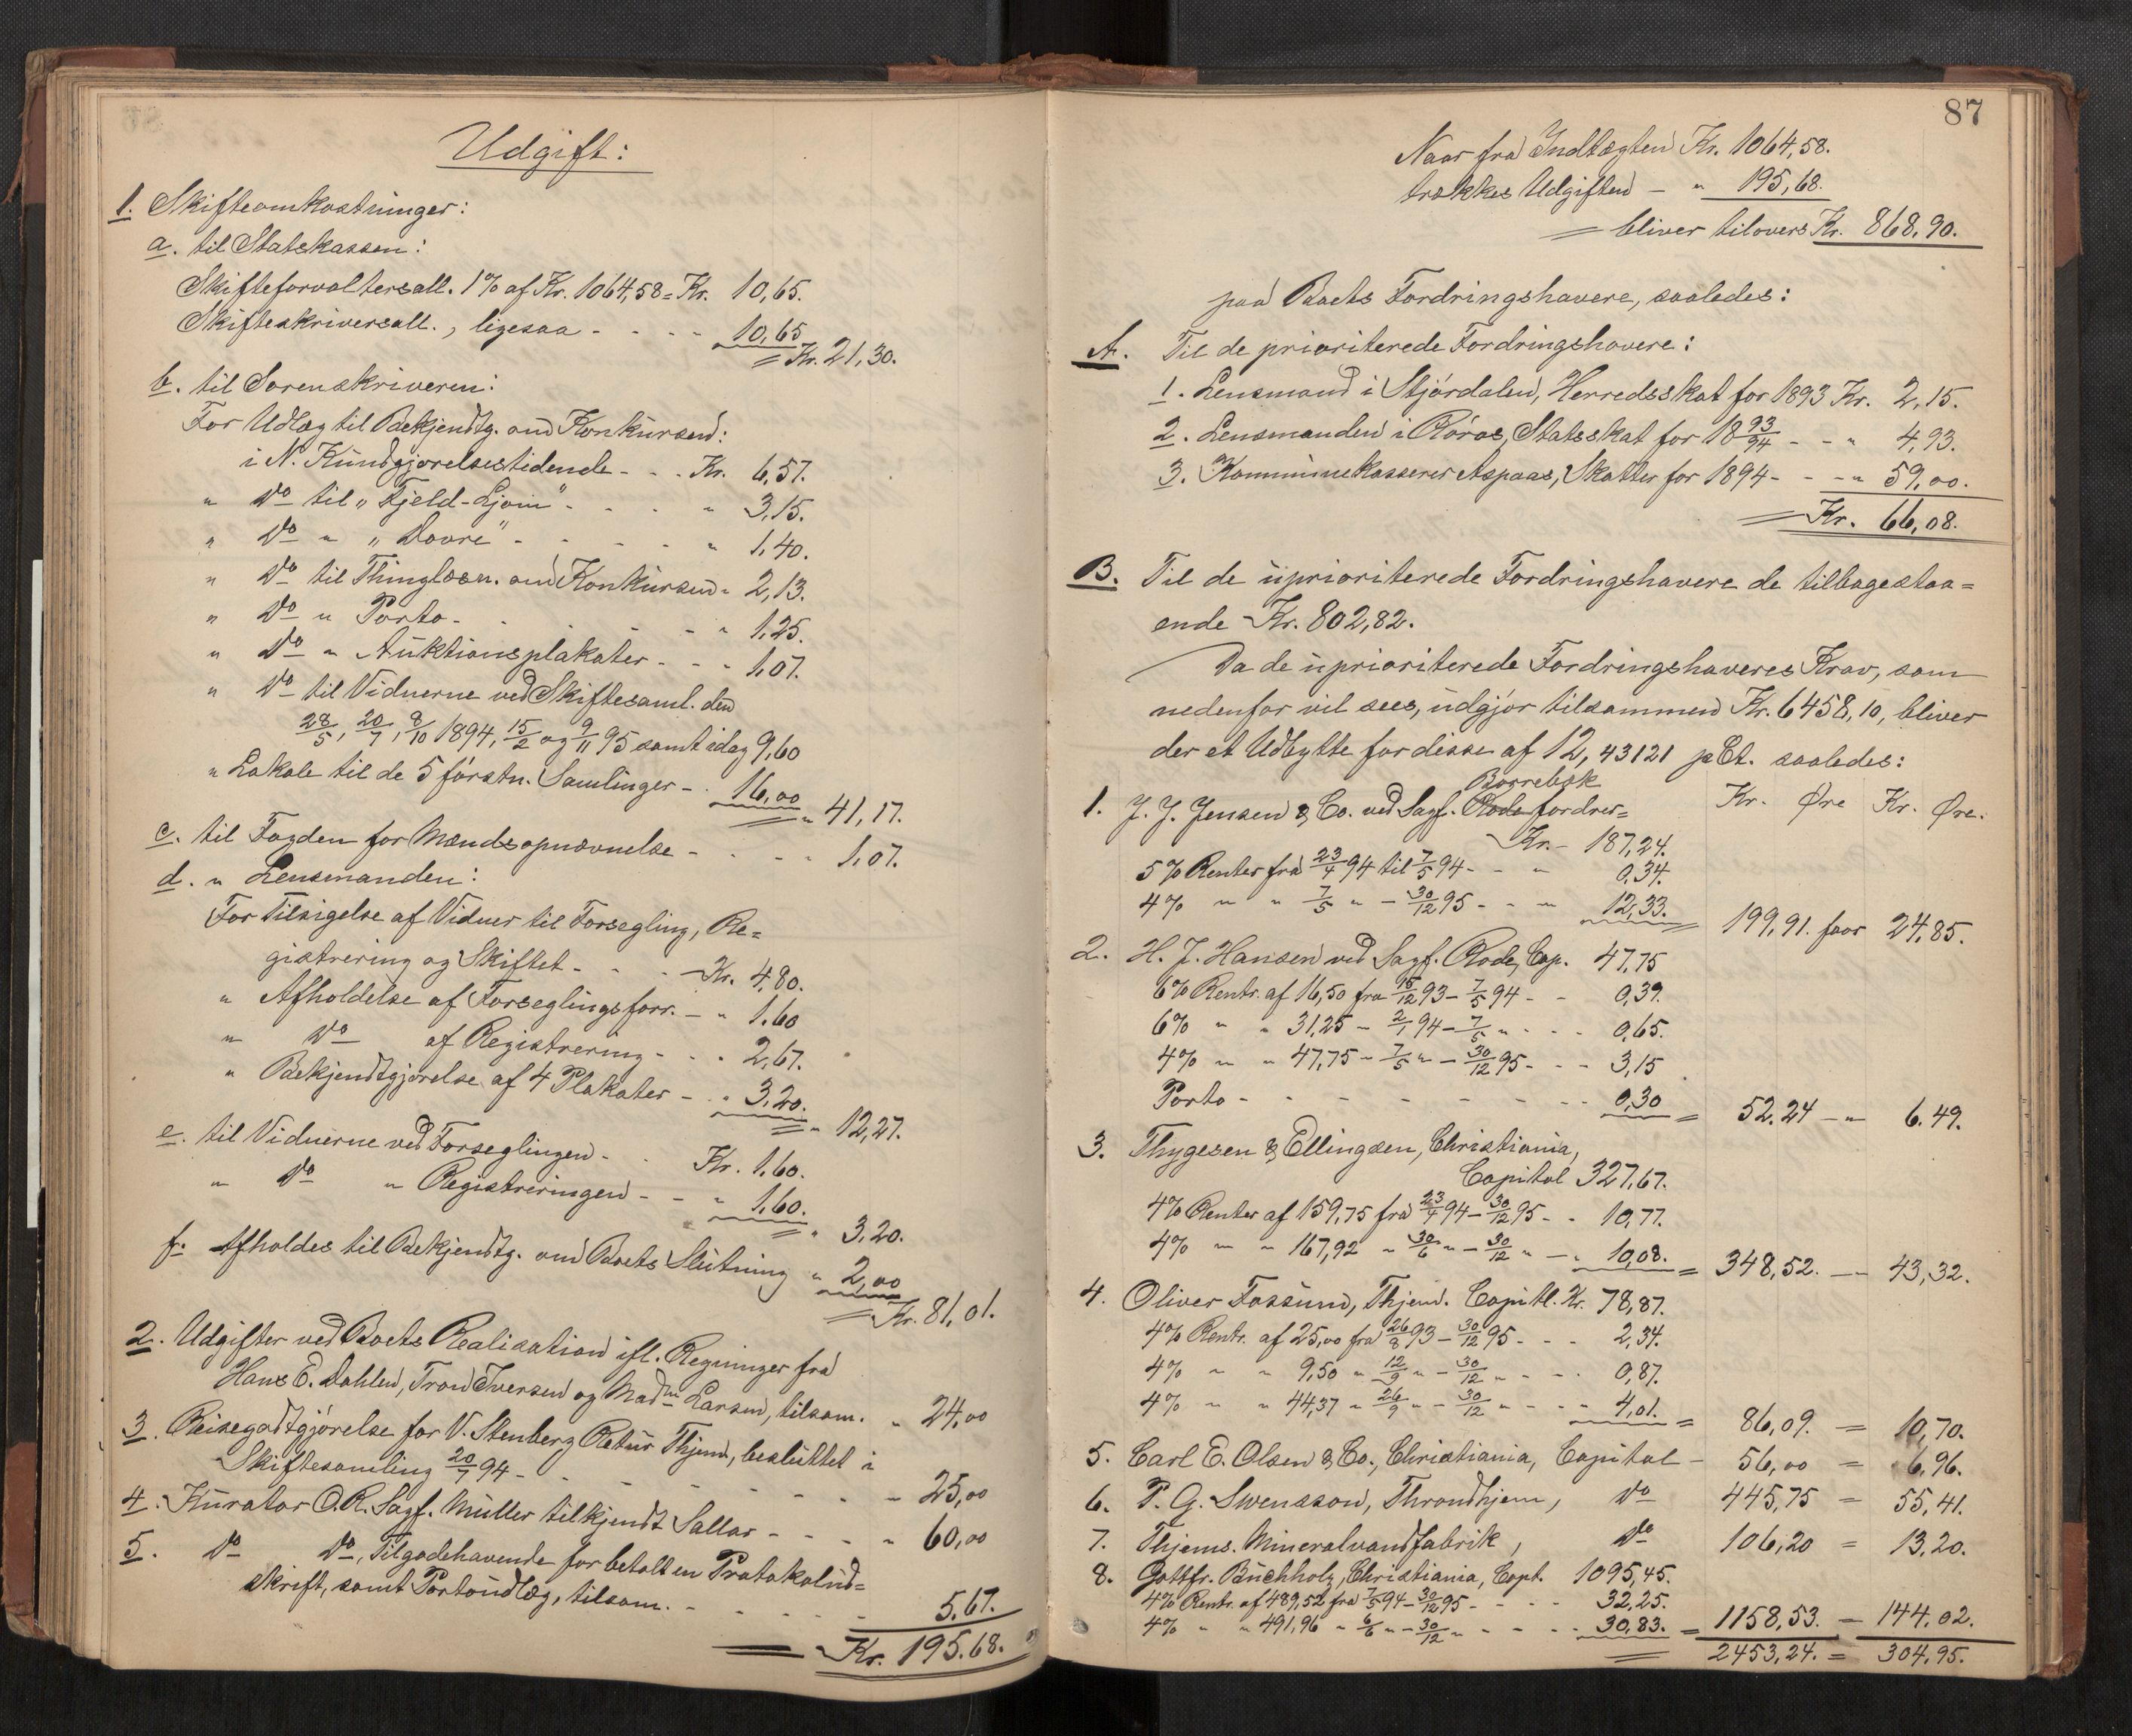 Udgift:
1. Skifteomkostninger:
a. til Statskassen:
Skifteforvaltersall. 1% af Kr. 1064,58 = Kr. 10,65.
Skifteskriversall., ligesaa - - - - 10,65
= Kr. 21,30.
b. til Sorenskriveren:
For Udlæg til Bekjendtg. om Konkursen:
i N. Kundgjørelsestidende - - . Kr. 6,57.
" do til "Fjeld-Ljom" - . . . " 3,15.
" do " "Dovre" - - - - " 1,40.
" do til Thinglæsn. om Konkursen " 2,13.
" do " Porto - . . - - " 1,25.
" do " Auktionsplakater - - - 1,07.
" do til Vidnerne ved Skiftesaml. den
28/5, 20/7, 8/10 1894, 15/2 og 9/11 95 samt idag 9,60
" Lokale til de 5 førstn. Samlinger - . 16,00 = " 41,17.
c. til Fogden for Mændsopnævnelse - . . . . 1,07.
d. " Lensmanden:
For Tilsigelse af Vidner til Forsegling, Re=
gistrering og Skiftet - . . . Kr. 4,80.
" Afholdelse af Forseglingsforr. - " 1,60
" do af Registrering - . . 2,67.
" Bekjendtgjørelse af 4 Plakater - . " 3,20. = " 12,27.
e. til Vidnerne ved Forseglingen - . Kr. 1,60.
" do " Registreringen - - " 1,60. = " 3,20.
f. Afholdes til Bekjendtg. om Boets Slutning " 2,00
= Kr. 81,01.
2. Udgifter ved Boets Realisation ifl. Regninger fra
Hans E. Dahlen, Tron Iversen og Madm Larsen, tilsam. " 24,00
3. Reisegodtgjørelse for V. Stenberg Retur Thjem, besluttet i
Skiftesamling 20/7 94 - - - - - - - 25,00
4. Kurator O.R. Sagf. Müller tilkjendt Sallar - - - - " 60,00
5. do do, Tilgodehavende for betalt en Protokolud=
skrift, samt Portoudlæg, tilsam. - - - - - - 5,67.
= Kr. 195.68.
87
Naar fra Indtægten Kr. 1064,58.
trækkes Udgiften - " 195,68.
= bliver tilovers Kr. 868,90.
paa Boets Fordringshavere, saaledes:
A. Til de prioriterede Fordringshavere:
1. Lensmand i Stjørdalen, Herredsskat for 1893 Kr. 2,15.
2. Lensmanden i Røros, Statsskat for 18 93/94 - - " 4,93.
3. Kommunekasserer Aspaas, Skatter for 1894 - - - " 59,00.
= Kr. 66,08.
B. Til de uprioriterede Fordringshavere de tilbagestaa=
ende Kr. 802,82.
Da de uprioriterede Fordringshaveres Krav, som
nedenfor vil sees, udgjør tilsammen Kr. 6458,10, bliver
der et Udbytte for disse af 12,43121 pCt. saaledes:
Borrebæk
1. J. J. Jensen & Co. ved Sagf. Rode fordrer= Kr. Øre Kr. Øre.
Kr. - 187,24.
5% Renter fra 23/4 94 til 7/5 94 - - " 0,34.
4% " " 7/5 " - 30/12 95 - - " 12,33. = 199,91. faar 24,85.
2. H. J. Hansen ved Sagf. Rode, Cap. 47,75
6% Rentr. af 16,50 fra 15/12 93 - 7/5 94 - - 0,39.
6% " " 31,25 - 2/1 94 - 7/5 " - - - 0,65.
4% " " 47,75 - 7/5 " - 30/12 95 - - - 3,15
Porto - - - - - - - - 0,30 = 52.24 - " 6.49.
3. Thygesen & Ellingsen, Christiania,
Capital 327,67.
4% Renter af 159,75 fra 23/4 94 - 30/12 95 - - 10,77.
4% " " 167,92 " 30/6 " - 30/12 " - . 10,08. = 348,52. - " 43,32.
4. Oliver Fossum, Thjem. Capitl. Kr. 78,87.
4% Rentr. af 25,00 fra 26/8 93 - 30/12 95 - - - 2,34.
4% " " 9,50 " 12/9 " - 30/12 " - - . 0,87.
4% " " 44,37 " 26/9 " - 30/12 " - - " 4,01. = 86,09. = 10,70.
5. Carl E. Olsen & Co., Christiania, Capital - 56,00 = 6,96.
6. P. G. Swensson, Throndhjem, do 445,75 = 55,41.
7. Thjems. Mineralvandfabrik, do 106,20 = 13,20.
8. Gottfr. Buchholz, Christiania, Capt. 1095,45.
4% Rentr. af 489,52 fra 7/5 94 - 30/12 95 - - - - 32,25.
4% " " 491,96 " 6/6 " - 30/12 " - - - - 30,83. = 1158,53. - 144,02.
= 2453,24. = 304,95.